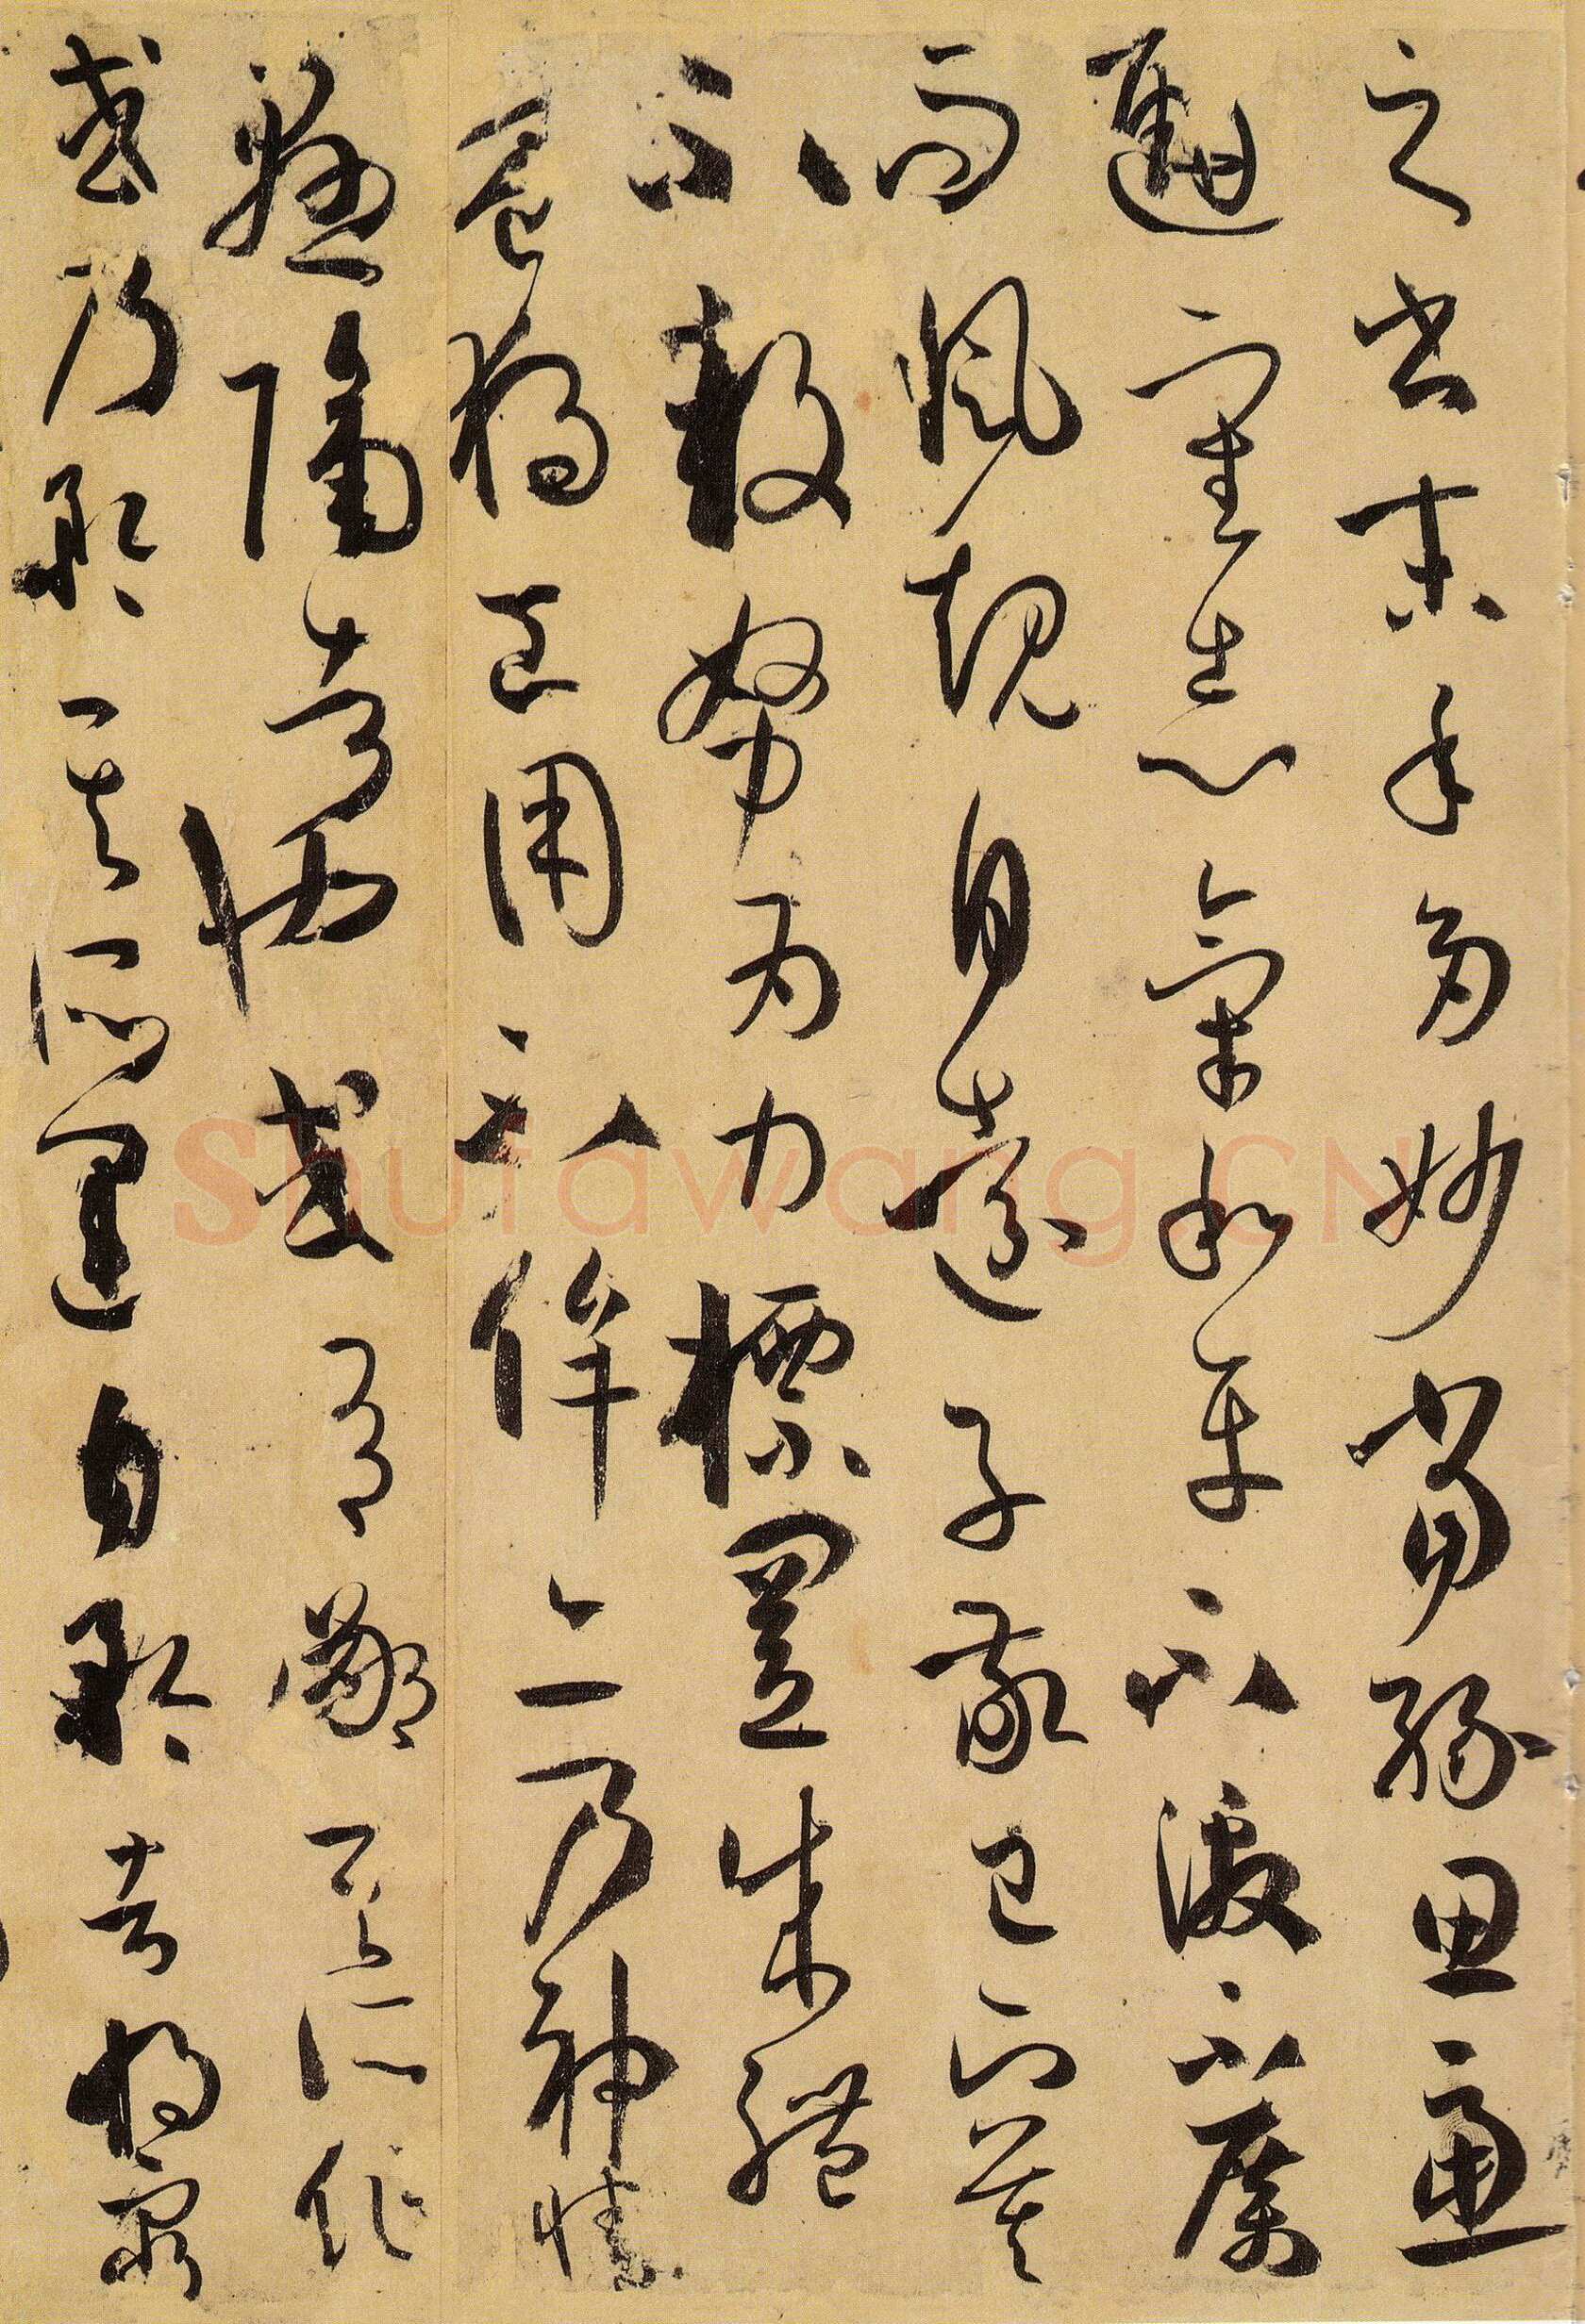 之書末年多妙當緣思慮
通審志氣和平不激不厲
而風規自遠子敬已下莫
不鼓努爲力標置成體
豈獨工用不侔亦乃神情
懸隔者也或有鄙其所作
或乃矜其所運自矜者將窮
shufawang.CN